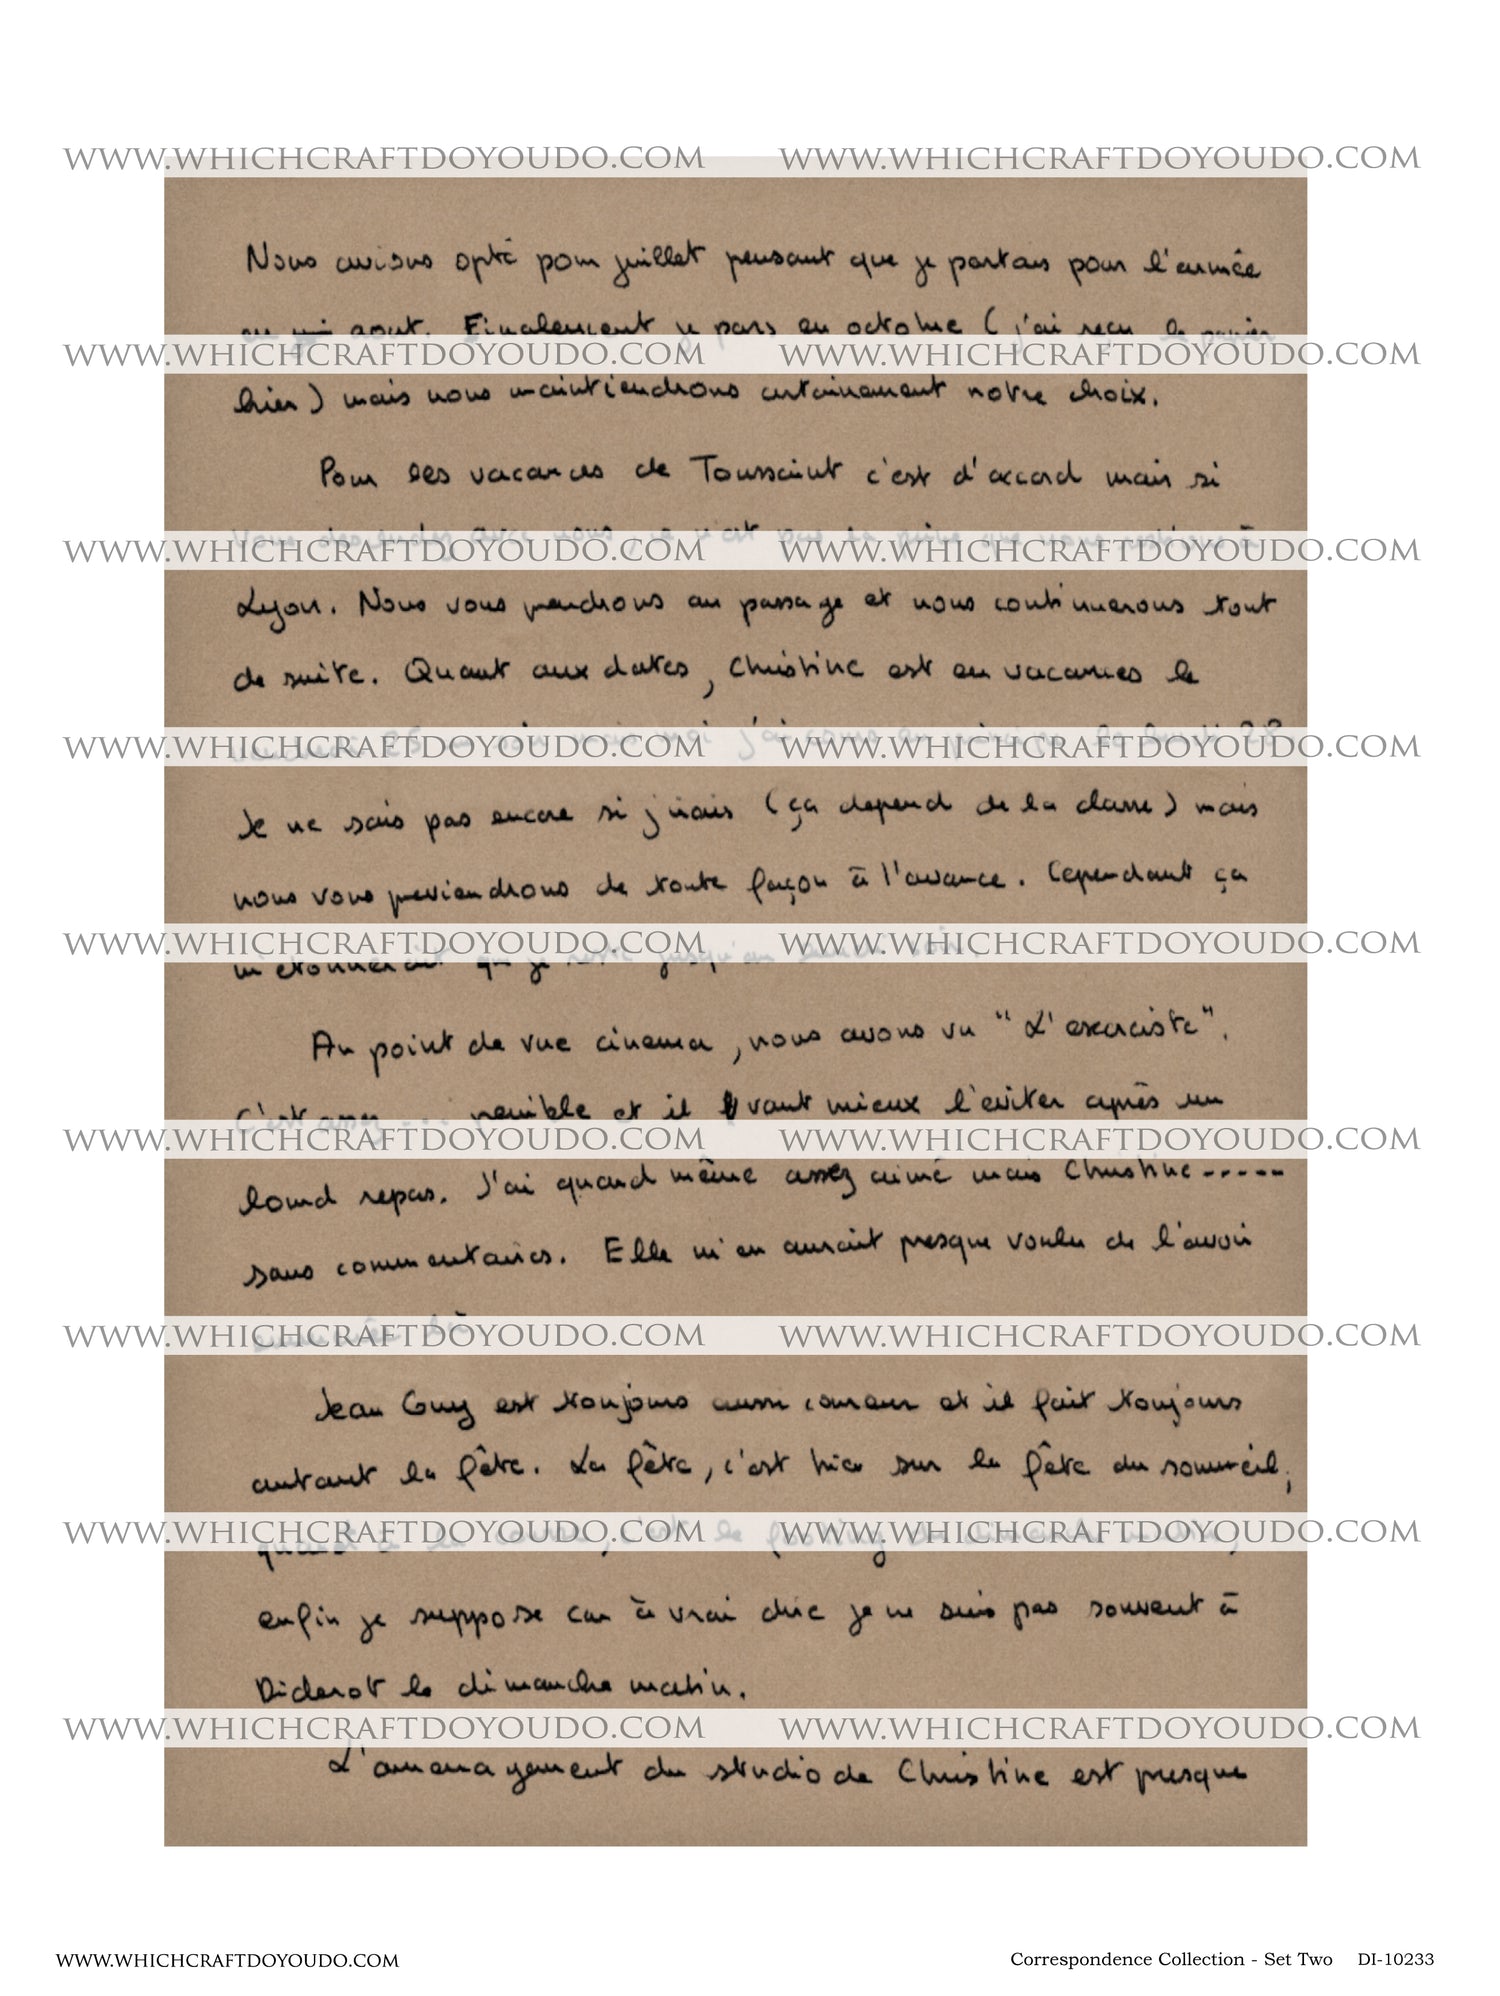 WWW.WHICHCRAFTDOYOUDO.COM WWW.WHICHCRAFTDOYOUDO.COM
Nous avions opté pour juillet pensant que je partais pour l'armée
en aout. Finalement je pars en octobre (j'ai reçu le papier
WWW.WHICHCRAFTDOYOUDO.COM WWW.WHICHCRAFTDOYOUDO.COM
hier) mais nous maintiendrons certainement notre choix.
Pour les vacances de Toussaint c'est d'accord mais si
vous descendez avec nous, ce n'est pas la peine que vous restiez à
WWW.WHICHCRAFTDOYOUDO.COM WWW.WHICHCRAFTDOYOUDO.COM
Lyon. Nous vous prendrons au passage et nous continuerons tout
de suite. Quant aux dates, Christine est en vacances le
vendredi 25 au soir mais moi j'ai cours en principe le lundi 28
WWW.WHICHCRAFTDOYOUDO.COM WWW.WHICHCRAFTDOYOUDO.COM
Je ne sais pas encore si j'irais (ça depend de la classe) mais
nous vous previendrons de toute façon à l'avance. Cependant ça
m'etonnerait que je reste jusqu'au lundi soir.
WWW.WHICHCRAFTDOYOUDO.COM WWW.WHICHCRAFTDOYOUDO.COM
Au point de vue cinema, nous avons vu "L'exorciste".
C'est assez ... penible et il vaut mieux l'eviter après un
WWW.WHICHCRAFTDOYOUDO.COM WWW.WHICHCRAFTDOYOUDO.COM
lourd repas. J'ai quand même assez aimé mais Christine -----
sans commentaires. Elle m'en aurait presque voulu de l'avoir
WWW.WHICHCRAFTDOYOUDO.COM WWW.WHICHCRAFTDOYOUDO.COM
Jean Guy est toujours aussi coureur et il fait toujours
autant la fête. La fête, c'est hier sur la fête du sommeil,
quant à la course, c'est le footing du dimanche matin,
WWW.WHICHCRAFTDOYOUDO.COM WWW.WHICHCRAFTDOYOUDO.COM
enfin je suppose car à vrai dire je ne suis pas souvent à
Diderot le dimanche matin.
WWW.WHICHCRAFTDOYOUDO.COM WWW.WHICHCRAFTDOYOUDO.COM
L'amenagement du studio de Christine est presque
WWW.WHICHCRAFTDOYOUDO.COM Correspondence Collection - Set Two DI-10233